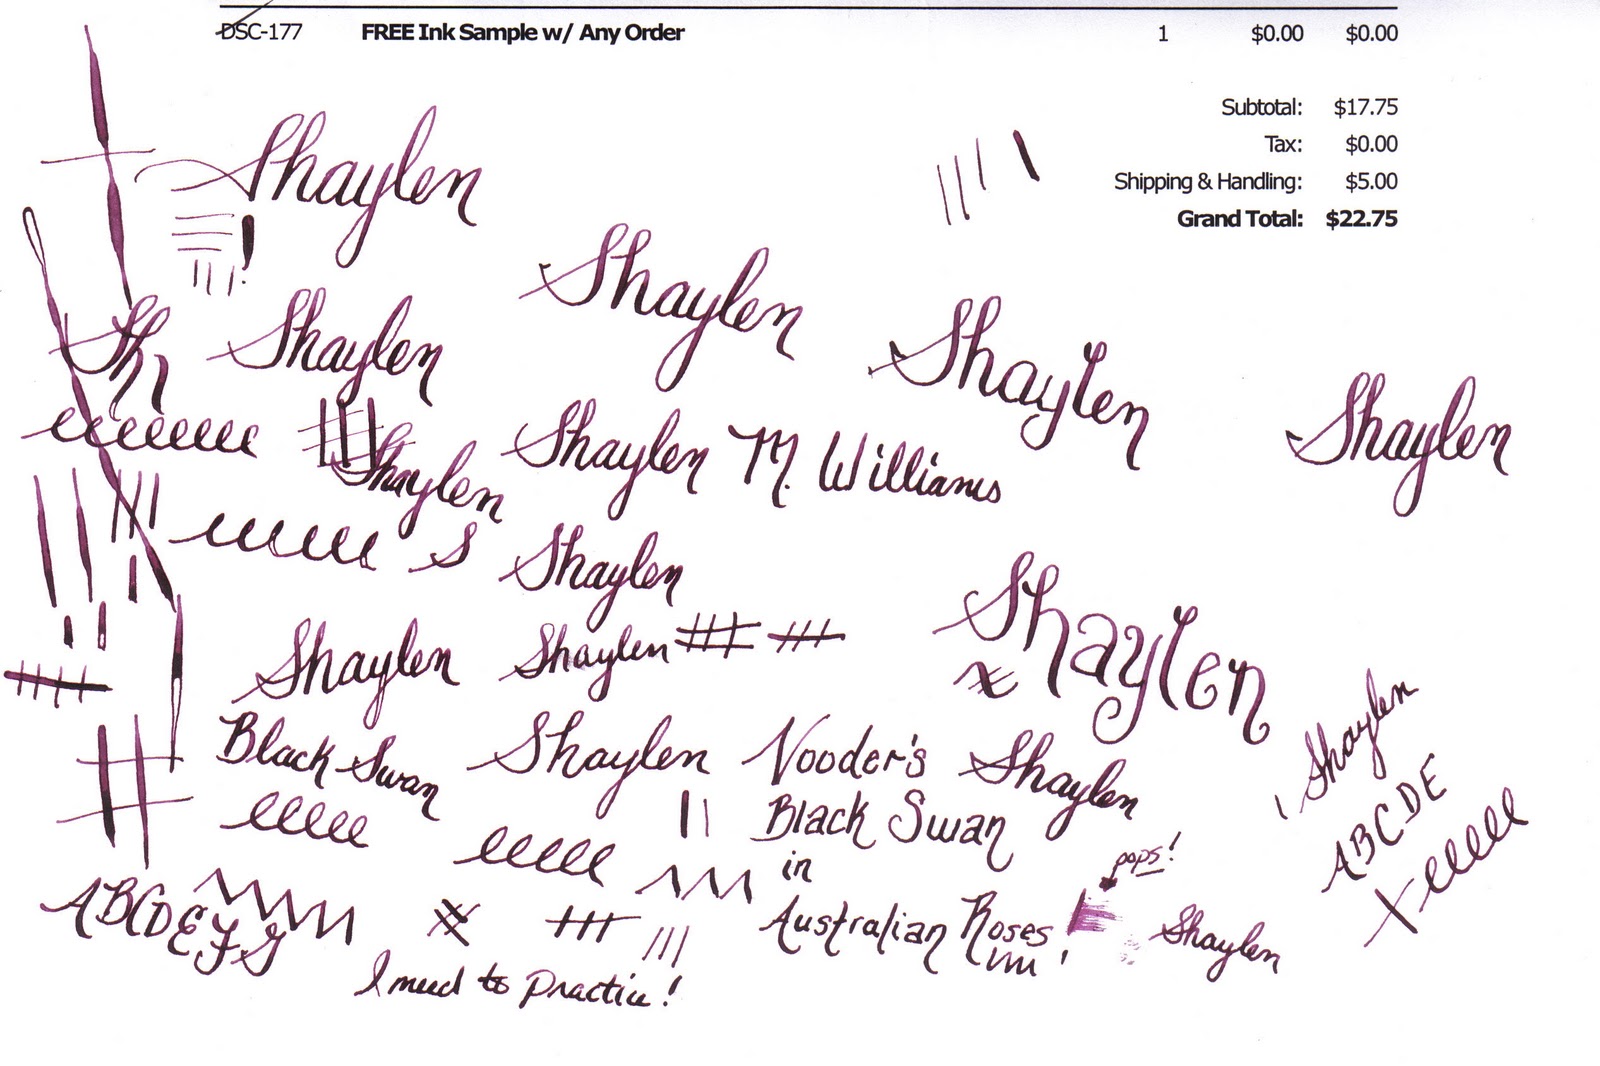 DSC-177 FREE Ink Sample w/ Any Order 1 $0.00 $0.00
Subtotal: $17.75
Tax: $0.00
Shipping & Handling: $5.00
Grand Total: $22.75
Shaylen
Shaylen
Sh Shaylen
Shaylen
Shaylen
Shaylen Shaylen M. Williams
S Shaylen
Shaylen Shaylen
Shaylen
Black Swan Shaylen Nooder's Shaylen
Shaylen
Black Swan
ABCDE
in
pops!
ABCDEFG
Australian Roses Shaylen
I need to Practice!